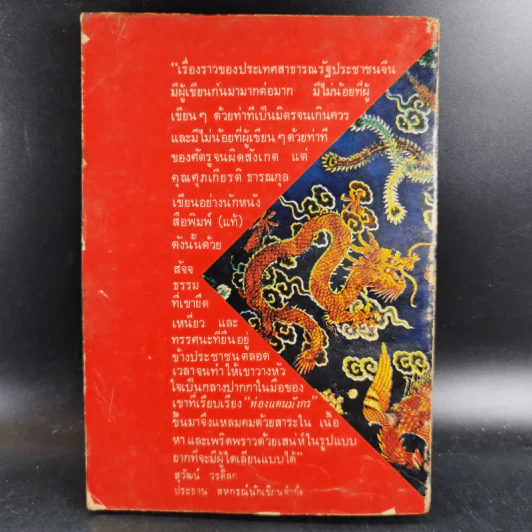 “เรื่องราวของประเทศสาธารณรัฐประชาชนจีน
มีผู้เขียนกันมามากต่อมาก มีไม่น้อยที่ผู้
เขียนๆ ด้วยท่าทีเป็นมิตรจนเกินควร
และมีไม่น้อยที่ผู้เขียนๆด้วยท่าที
ของศัตรูจนผิดสังเกต แต่
คุณศุภเกียรติ ธารณกุล
เขียนอย่างนักหนัง
สือพิมพ์ (แท้)
ดังนั้นด้วย
สัจจ
ธรรม
ที่เขายึด
เหนี่ยว และ
ทรรศนะที่ยืนอยู่
ข้างประชาชนตลอด
เวลาจนทำให้เขาวางหัว
ใจเป็นกลางปากกาในมือของ
เขาที่เรียบเรียง “ท่องแดนมังกร”
ขึ้นมาจึงแหลมคมด้วยสาระใน เนื้อ
หา และเพริดพราวด้วยเสน่ห์ในรูปแบบ
ยากที่จะมีผู้ใดเลียนแบบได้”
สุวัฒน์ วรดิลก
ประธาน สหกรณ์นักเขียนจำกัด